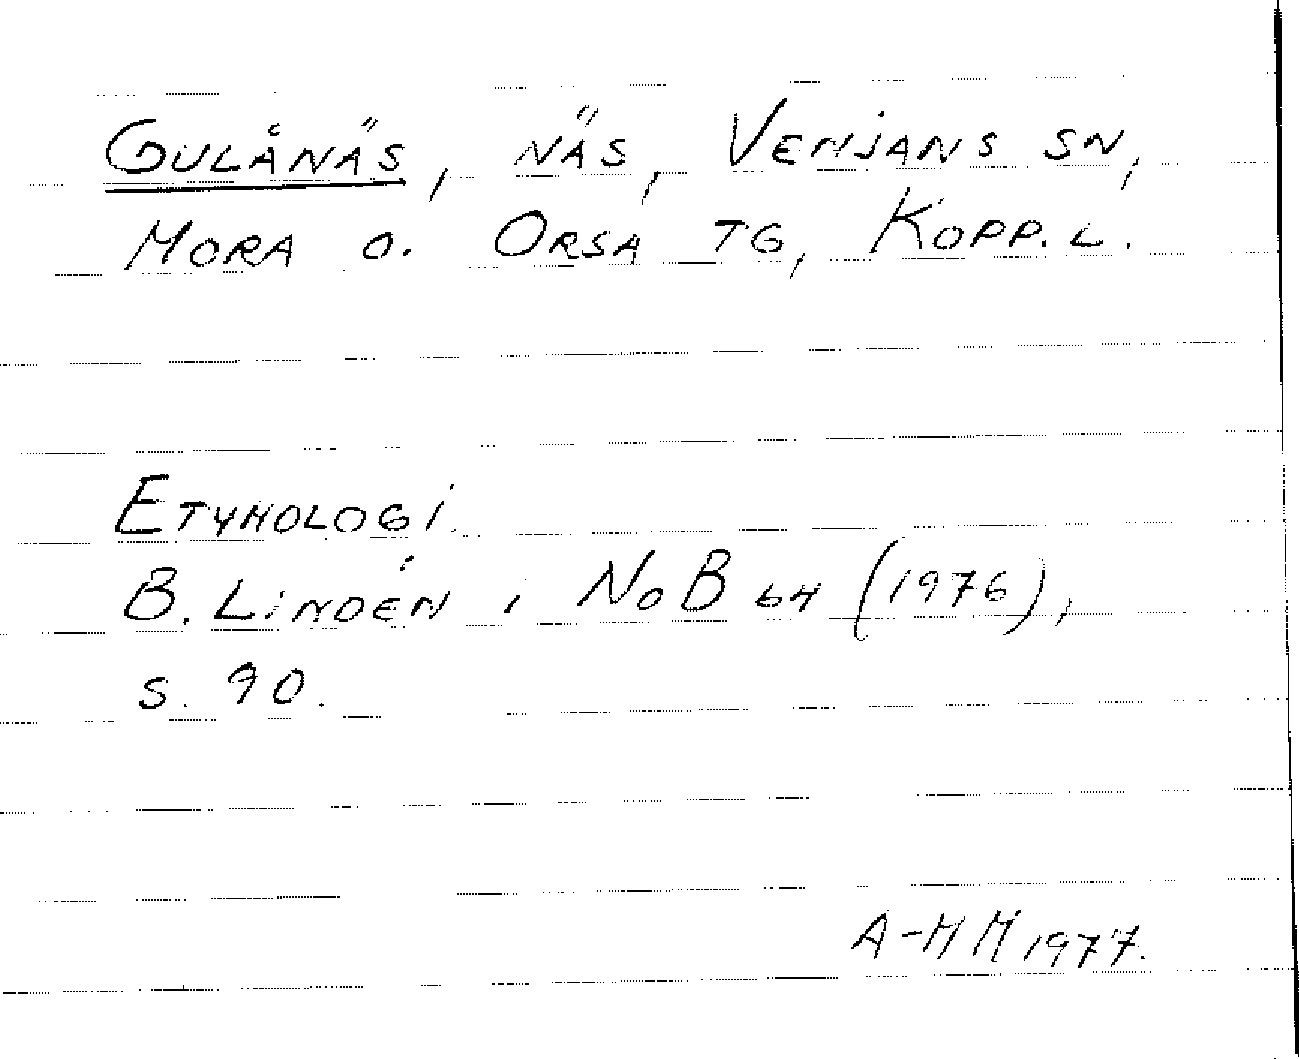 GULÅNÄS, NÄS, VENJANS SN,
MORA O. ORSA TG, KOPP. L.
ETYMOLOGI
B. LINDÉN i NoB 64 (1976),
S. 90.
A-MM 1977.